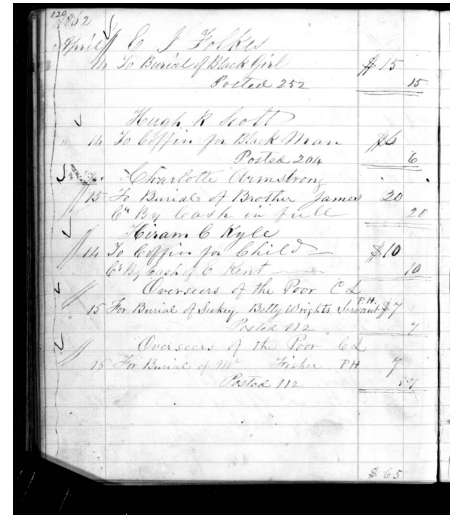 120
1862
April C J Folkes
14 To Burial of Black Girl $15
Posted 252 15
Hugh R Scott
14 To Coffin for Black Man $6
Posted 204 6
Charlotte Armstrong
15 To Burial of Brother James 20
Cr By Cash in full 20
Hiram C Kyle
14 To Coffin for Child $10
Cr By Cash of C Kent 10
Overseers of the Poor C L
15 For Burial of Betty Wrights Servant P.H. $7
Posted 112 7
Overseers of the Poor C L
15 For Burial of Mr Fisher PH 7
Posted 112 7
$65